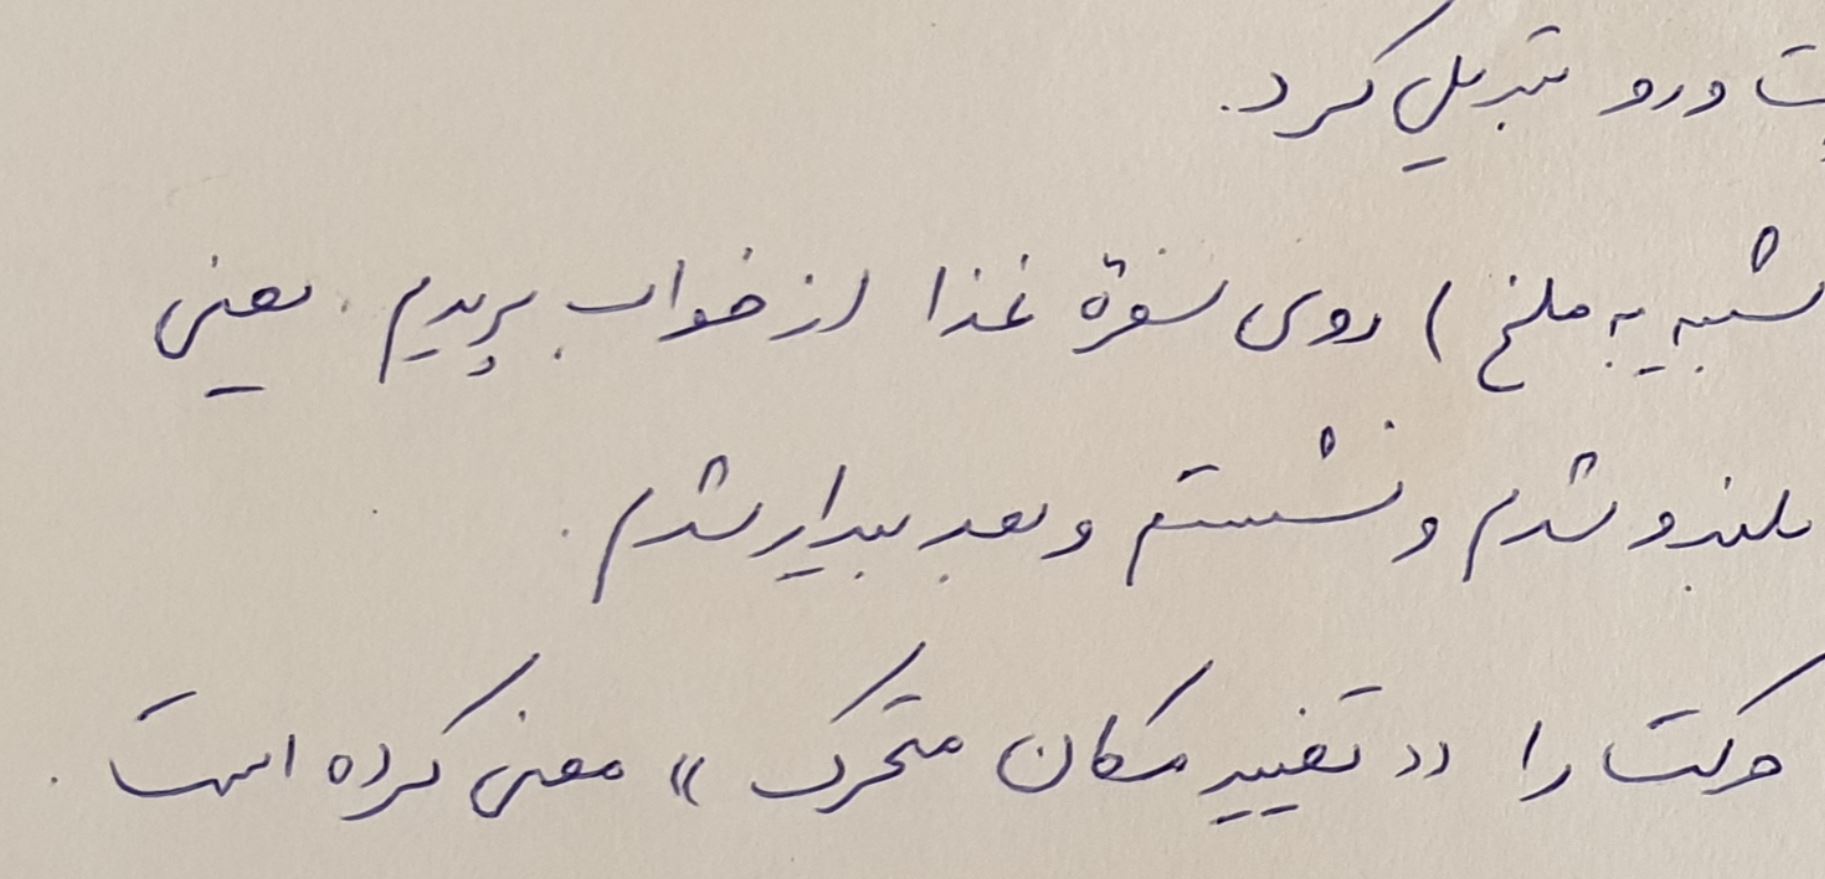 ت و رو تبدیل کرد.
شبیه به ملخ) روی سفرهٔ غذا از خواب پریدم. یعنی
بلند و شدم و نشستم و بعد بیدار شدم.
حرکت را «تغییر مکان متحرک» معنی کرده است.